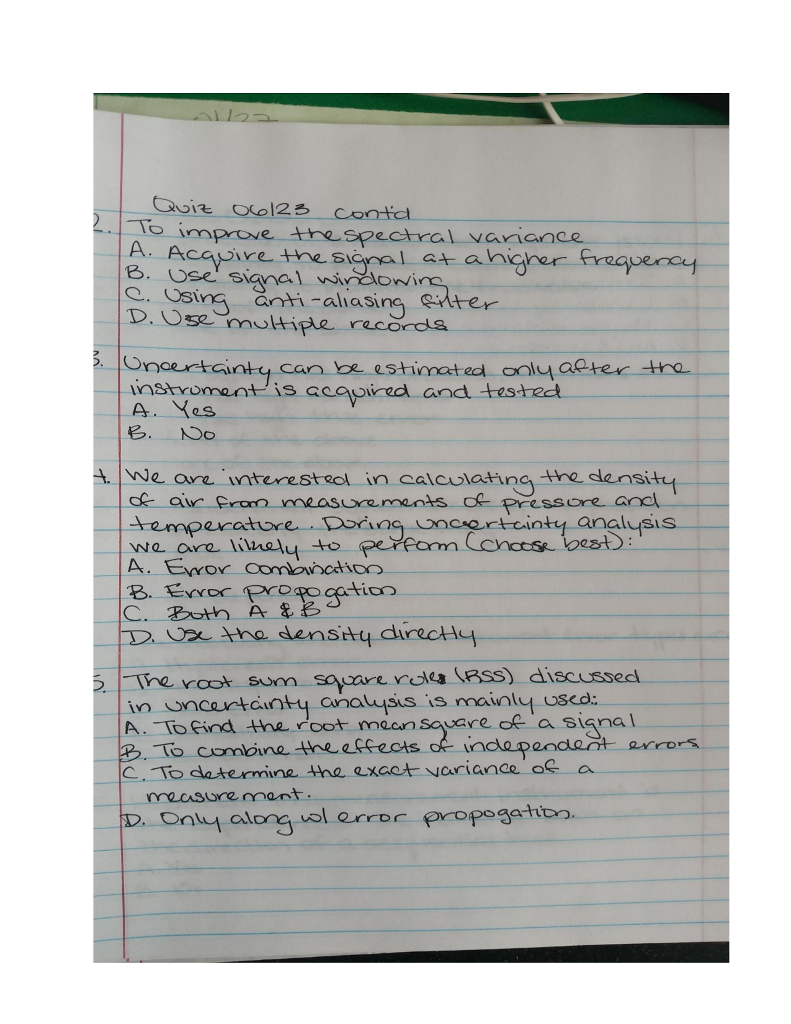 01/27
Quiz 06/23 cont'd
2. To improve the spectral variance
A. Acquire the signal at a higher frequency
B. Use signal windowing
C. Using anti-aliasing filter
D. Use multiple records
3. Uncertainty can be estimated only after the
instrument is acquired and tested
A. Yes
B. No
4. We are interested in calculating the density
of air from measurements of pressure and
temperature. During uncertainty analysis
we are likely to perform (choose best):
A. Error combination
B. Error propogation
C. Both A & B
D. Use the density directly
5. The root sum square rules (RSS) discussed
in uncertainty analysis is mainly used:
A. To find the root mean square of a signal
B. To combine the effects of independent errors
C. To determine the exact variance of a
measurement.
D. Only along w/ error propogation.